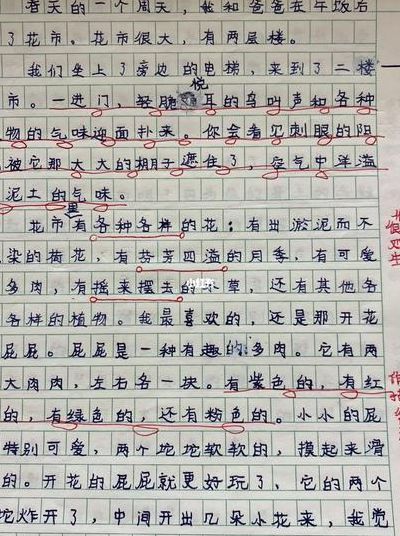 春天的一个周天，我和爸爸在午饭后
了花市。花市很大，有两层楼。
我们坐上了旁边的电梯，来到了二楼
市。一进门，轻脆悦耳的鸟叫声和各种
物的气味迎面扑来。你会看见刺眼的阳
被它那大大的胡子遮住了，空气中洋溢
泥土的气味。
花市里有各种各样的花：有出淤泥而不
染的荷花，有芬芳四溢的月季，有可爱
多肉，有摇来摆去的小草，还有其他各
各样的植物。我最喜欢的，还是那开花
屁屁。屁屁是一种有趣的多肉。它有两
大肉肉，左右各一块。有紫色的，有红
的，有绿色的，还有粉色的。小小的屁
特别可爱，两个坨坨软软的，摸起来滑
的。开花的屁屁就更好玩了，它的两个
坨炸开了，中间开出几朵小花来，我觉